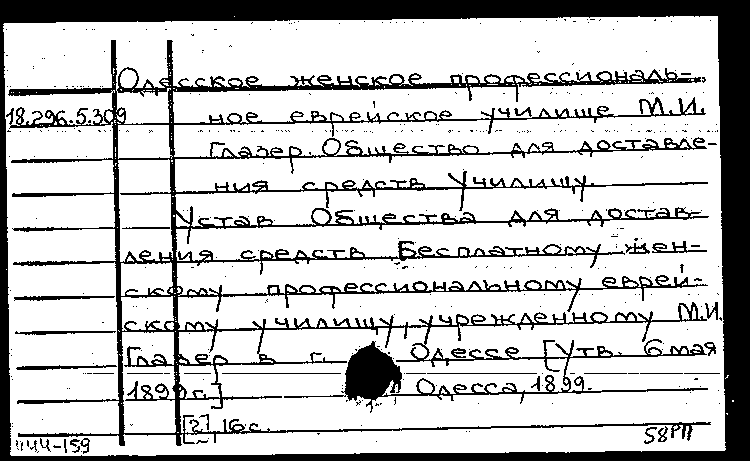 Одесское женское профессиональ-
18.296.5.309 ное еврейское училище М.И.
Глазер. Общество для доставле-
ния средств Училищу.
Устав Общества для достав-
ления средств Бесплатному жен-
скому профессиональному еврей-
скому училищу, учрежденному М.И.
Глазер в г. Одессе [Утв. 6 мая
1899 г.] Одесса, 1899.
[2], 16 с.
444-159 58РП